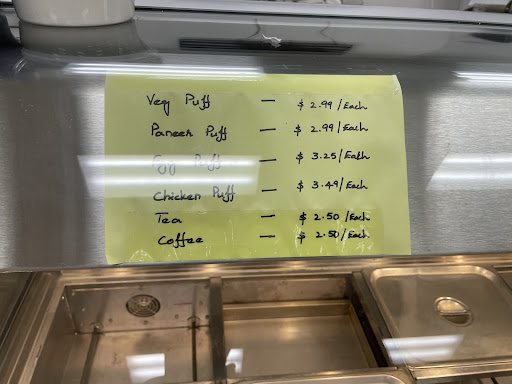 Veg Puff — $ 2.99/Each
Paneer Puff — $ 2.99/Each
Egg Puff — $ 3.25/Each
Chicken Puff — $ 3.49/Each
Tea — $ 2.50/Each
Coffee — $ 2.50/Each